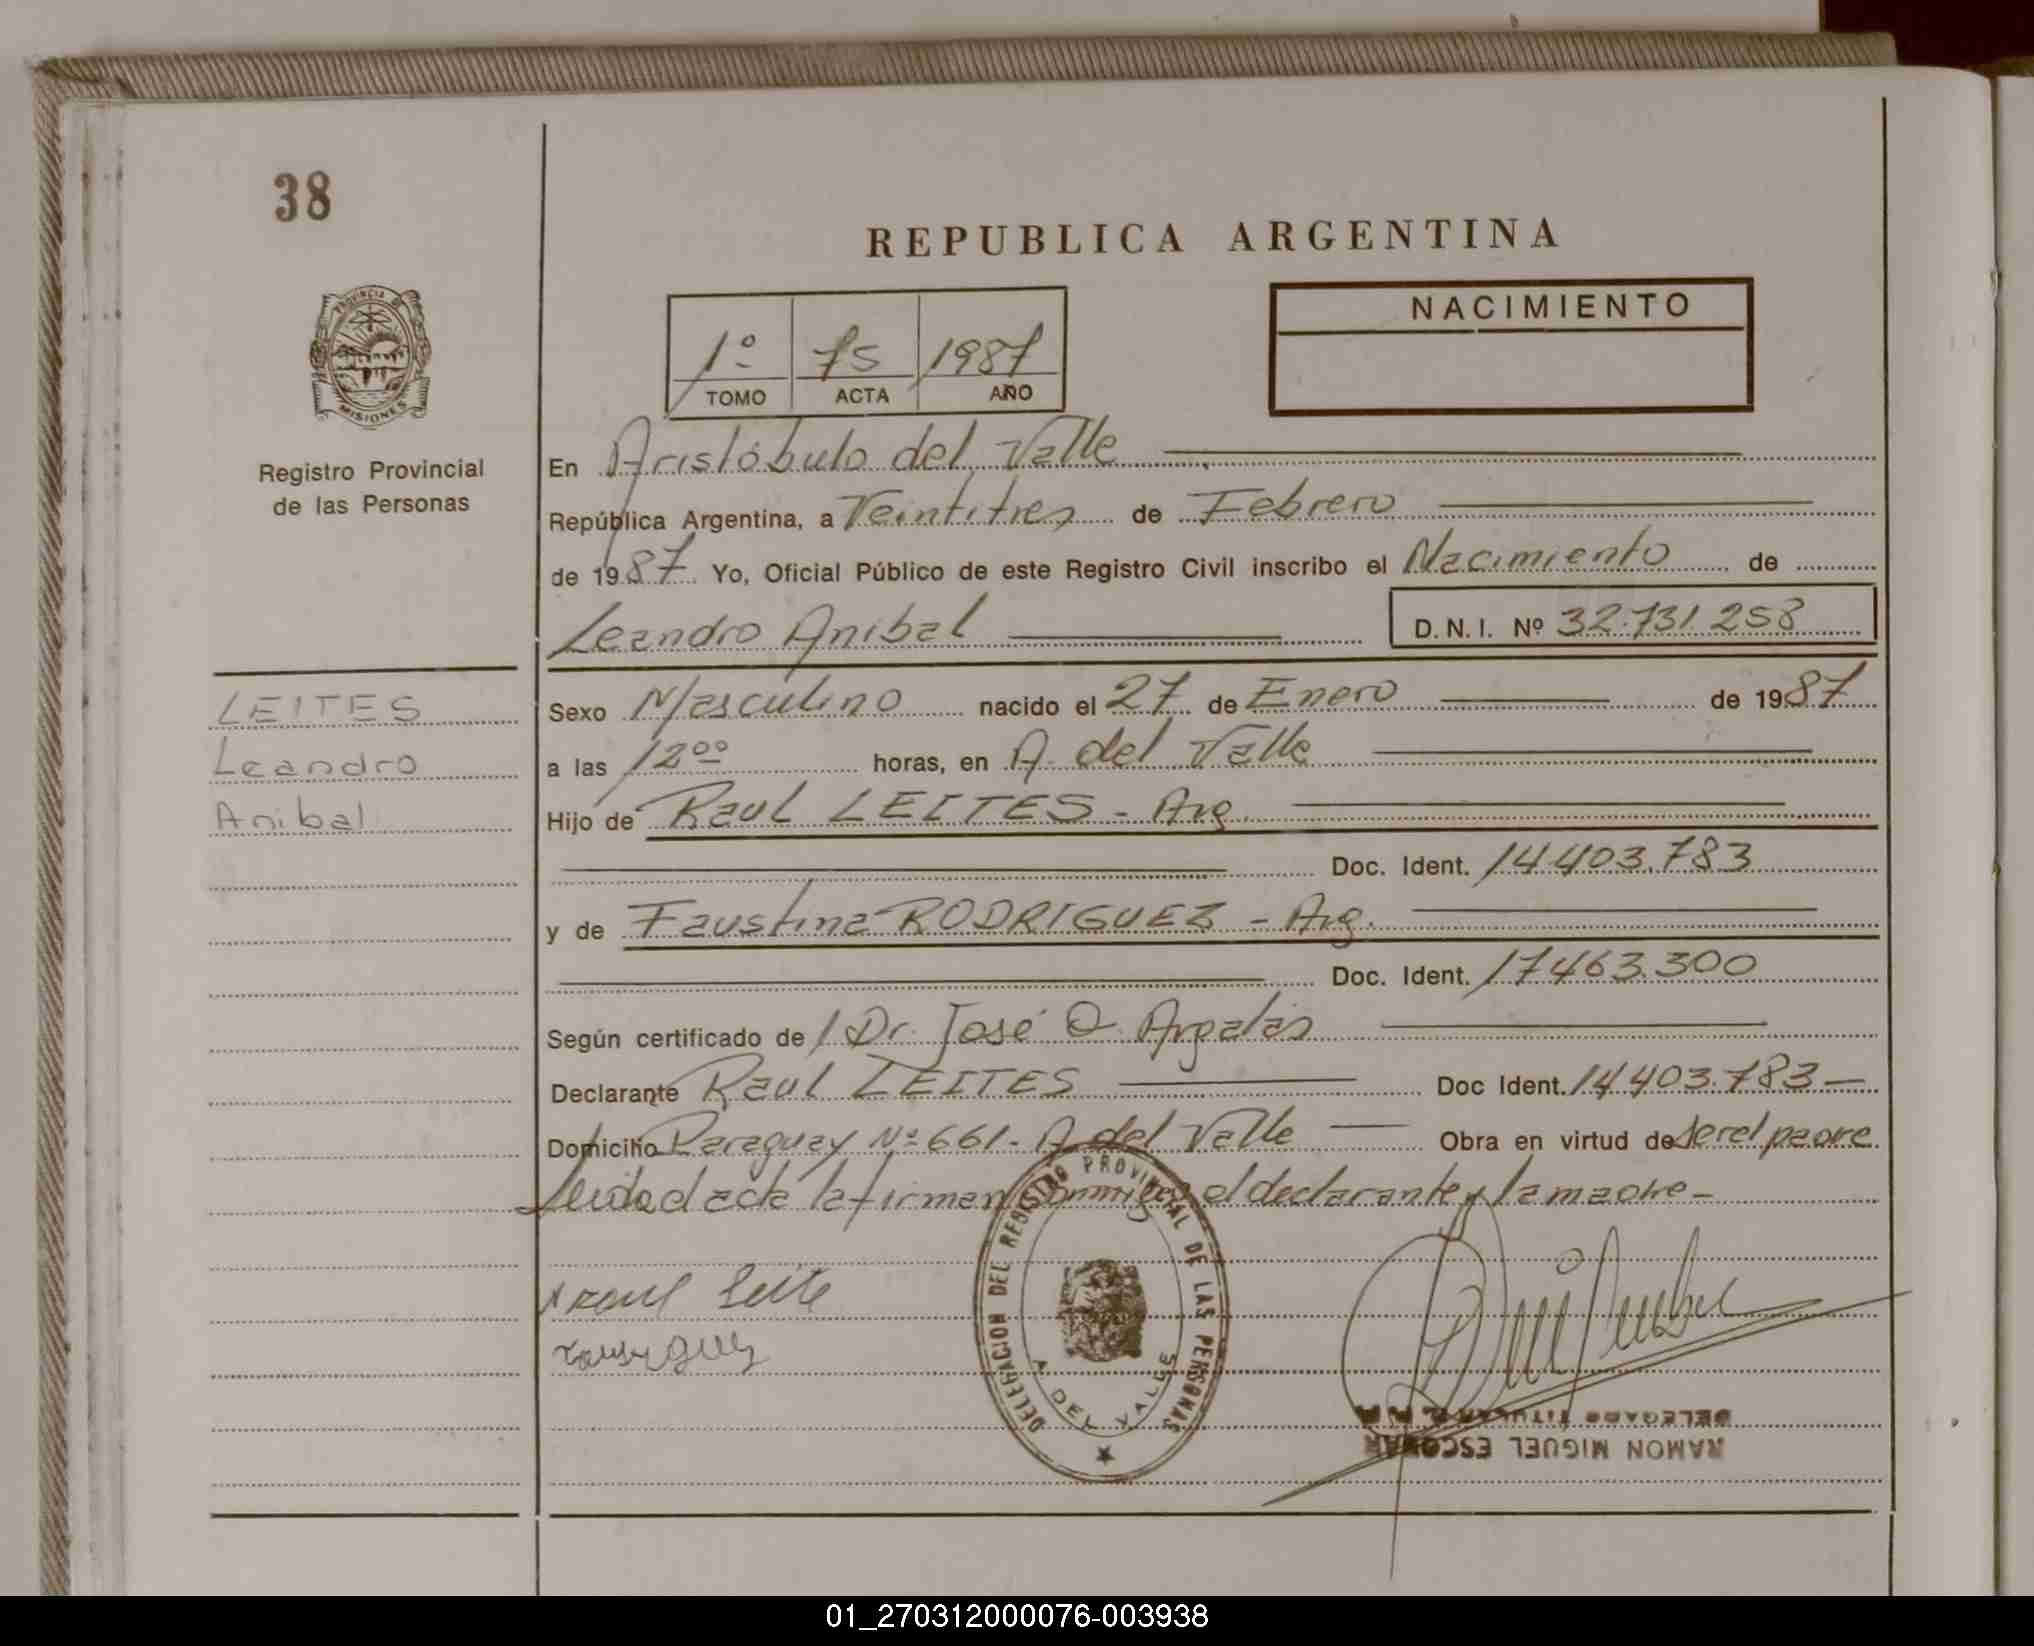 38
REPUBLICA ARGENTINA
PROVINCIA D
MISIONES
Registro Provincial
de las Personas
NACIMIENTO
1º 75 1987
TOMO ACTA AÑO
En Aristóbulo del Valle
República Argentina, a Veintitres de Febrero
de 1987. Yo, Oficial Público de este Registro Civil inscribo el Nacimiento de
Leandro Anibal D.N.I. Nº 32.731.258
LEITES
Leandro
Anibal
Sexo Masculino nacido el 27 de Enero de 1987
a las 12ºº horas, en A. del Valle
Hijo de Raul LEITES - Arg.
Doc. Ident. 14.403.783
y de Faustina RODRIGUEZ - Arg.
Doc. Ident. 17.463.300
Según certificado de Dr. José O. Argalás
Declarante Raul LEITES Doc Ident. 14.403.783-
Domicilio Paraguay Nº 661 - A. del Valle Obra en virtud de ser el padre
leida el acta la firman conmigo el declarante y la madre-
Raul Leite
DELEGACION DEL REGISTRO PROVINCIAL DE LAS PERSONAS
A. DEL VALLE
RAMON MIGUEL ESCOBAR
DELEGADO TITULAR R. P. P.
01_270312000076-003938